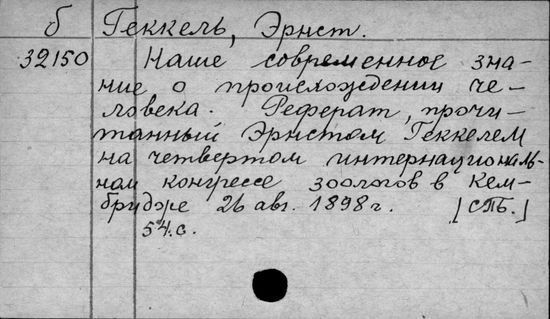 б Геккель, Эрнст.
32150 Наше современное зна-
ние о происхождении че-
ловека. Реферат, прочи-
танный Эрнстом Геккелем
на четвертом интернациональ-
ном конгрессе зоологов в Кем-
бридже 26 авг. 1898 г. [СПБ.]
54.с.